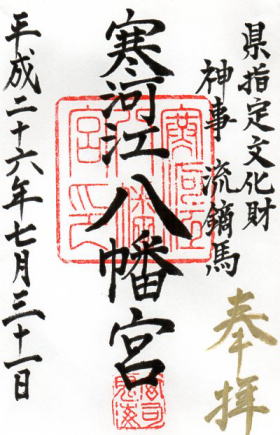 奉拝
県指定文化財
神事 流鏑馬
寒河江八幡宮
平成二十六年七月三十一日